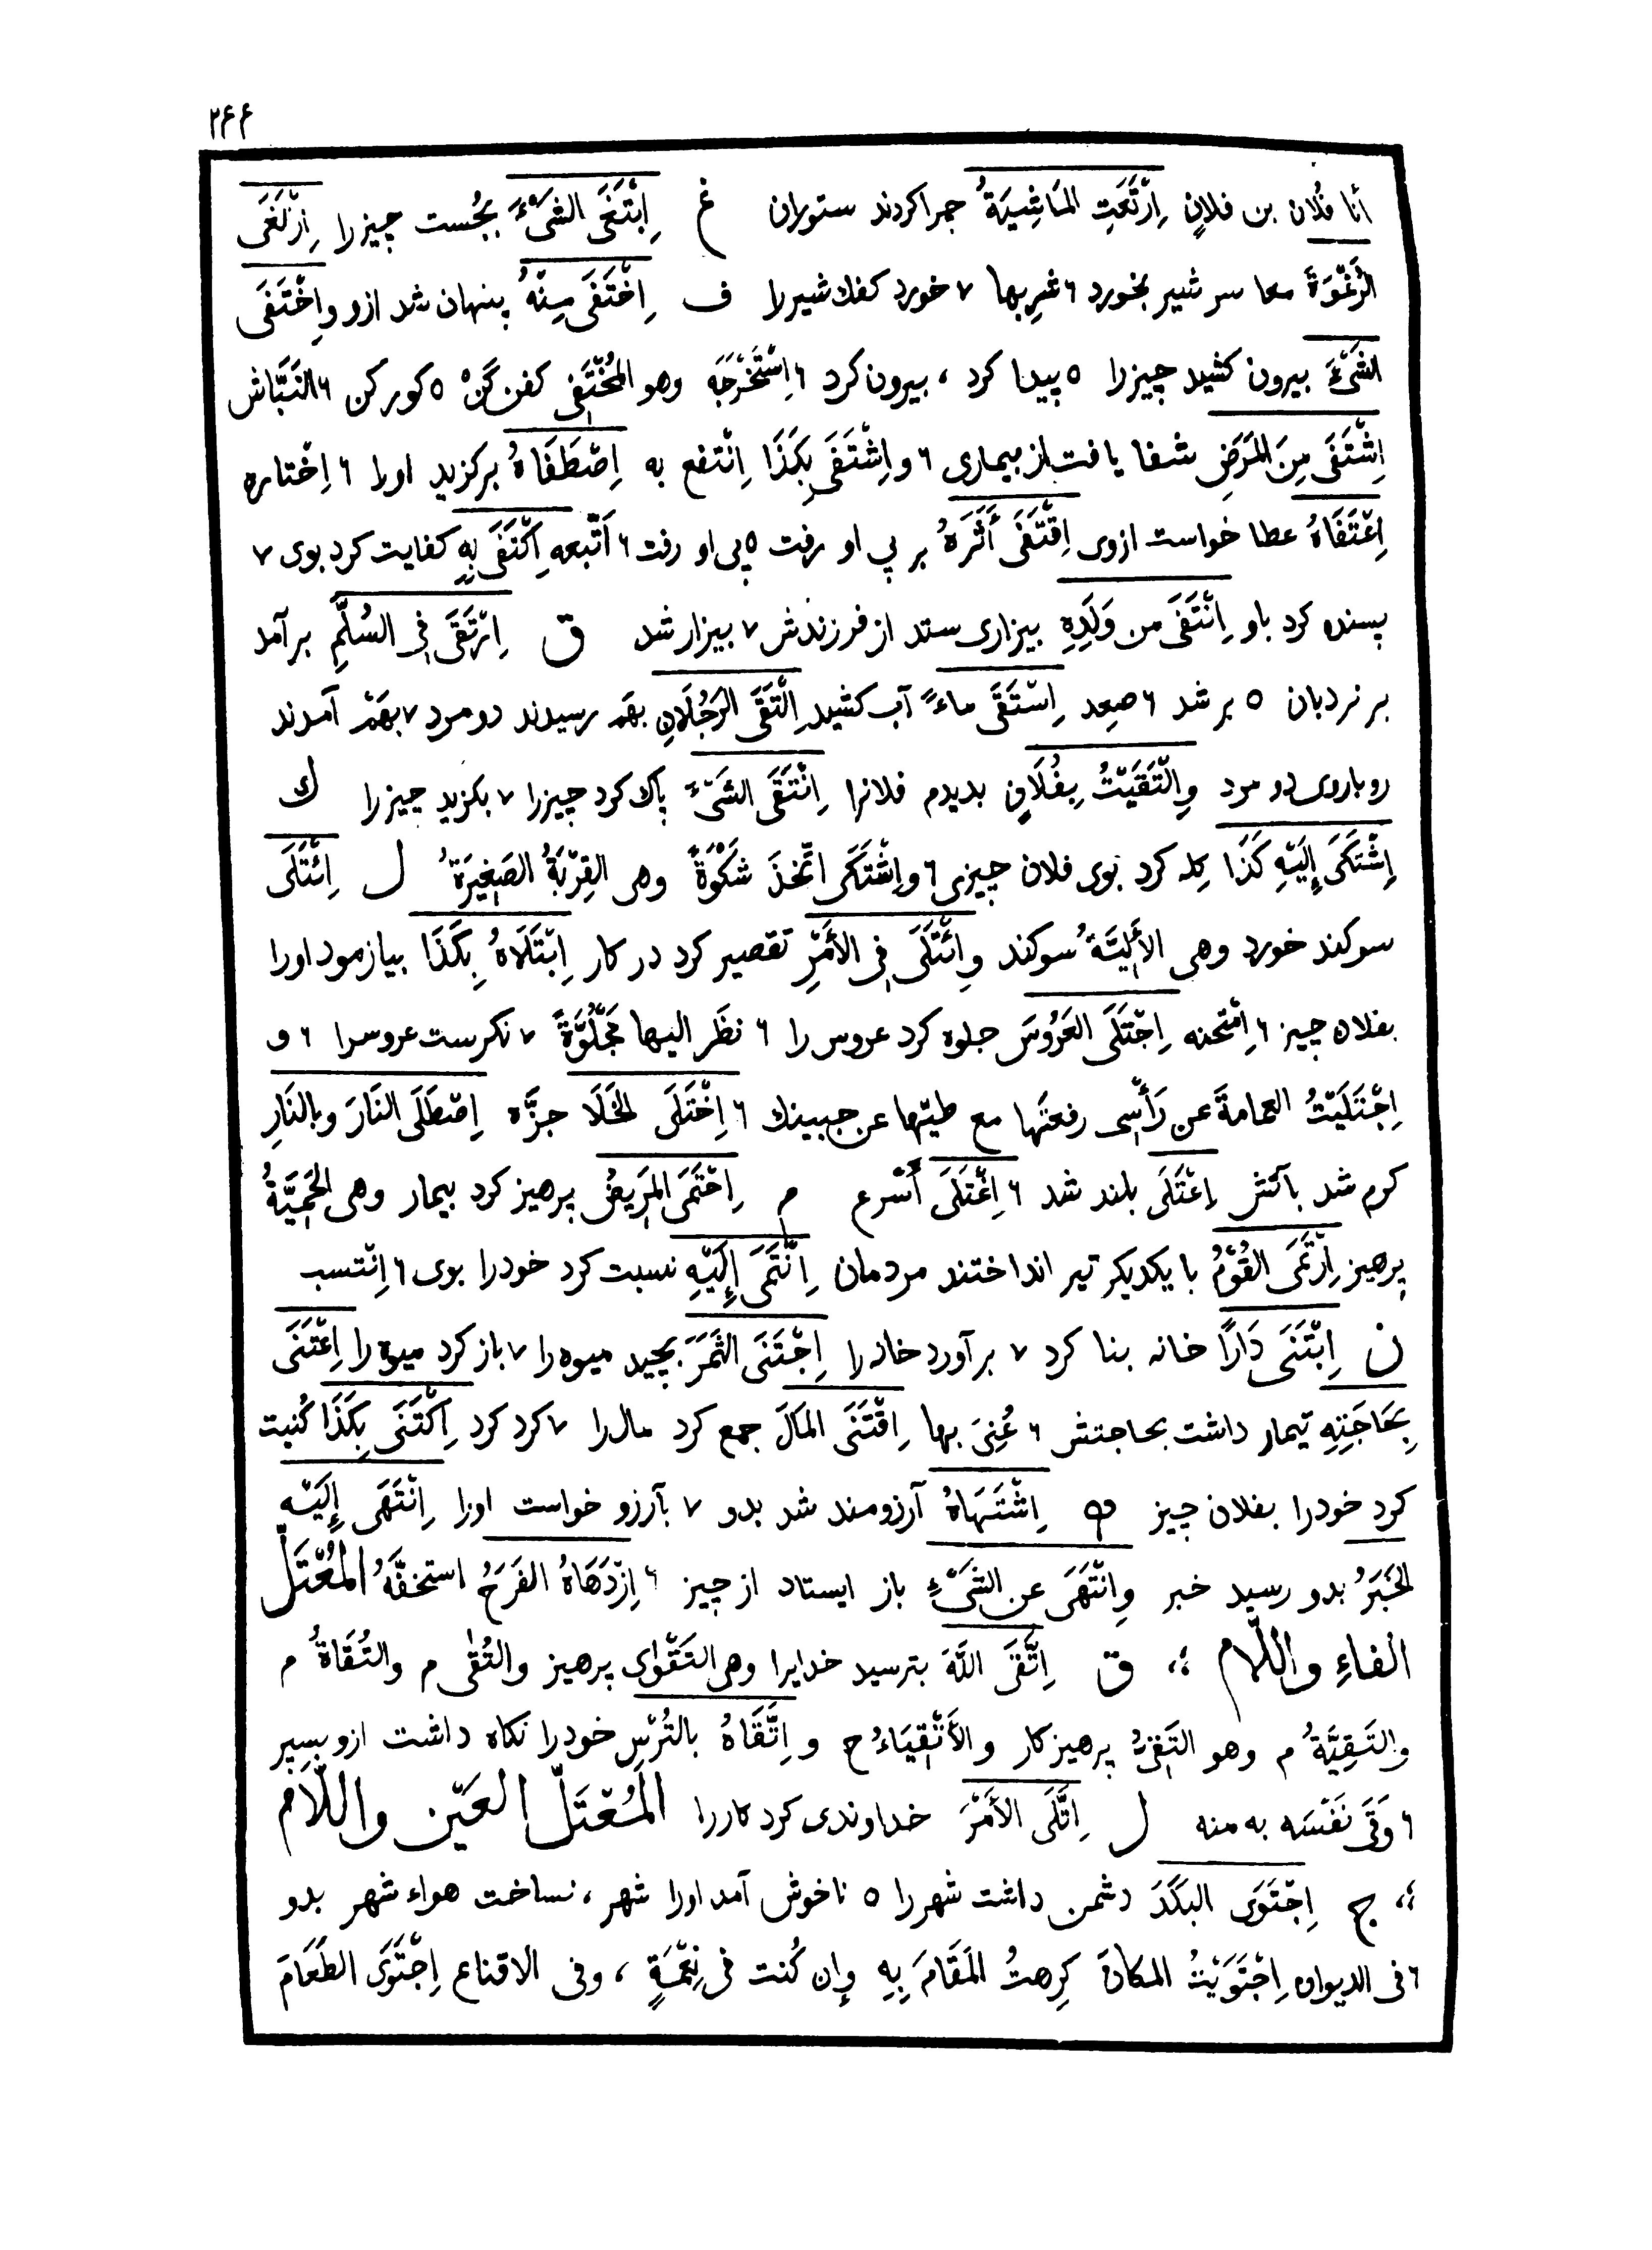 ۲۶۶
أنا فُلان بن فلانٍ اِرْتَعَتِ المَاشِيَةُ چرا کردند ستوران غ اِبْتَغَى الشَّيْءَ بجُست چیز را اِرْتَغَى
الرُّغْوَةَ معا سر شیر بخورد ۶ شربها ۷ خورد کفك شیر را ف اِخْتَفَى مِنْهُ پنهان شد ازو واِخْتَفَى
الشَيْءَ بیرون کشید چیز را ۵ پیدا کرد ، بیرون کرد ۶ اِسْتَخْرَجَه وهو المُخْتَفِى کفن کَنْ ۵ کور کن ۶ النَبَّاش
اِشْتَفَى مِنَ المَرَضِ شفا یافت از بیماری ۶ و اِشْتَفَى بِكَذَا اِنْتفع به اِصْطَفَاهُ برکزید اورا ۶ اِخْتاره
اِعْتَفَاهُ عطا خواست ازوی اِقْتَفَى أَثَرَهُ بر پی او رفت ۵ پی او رفت ۶ اَتّبعه اِكْتَفَى بِهِ کفایت کرد بوی ۷
بسنده کرد باو اِنْتَفَى من وَلَدِهِ بیزاری ستد از فرزندش ۷ بیزار شد ق اِرْتَقَى فِى السُلَّمِ بر آمد
بر نردبان ۵ بر شد ۶ صعِد اِسْتَقَى ماءً آب کشید اِلْتَقَى الرَجُلَانِ بهَم رسیدند دو مرد ۷ بهَمْ آمدند
روباروی دو مرد وِالْتَقَيْتُ بِفُلَانٍ بدیدم فلانرا اِنْتَقَى الشَيْءَ پاك کرد چیز را ۷ بکزید چیز را ك
اِشْتَكَى إِلَيْهِ كَذَا کله کرد بوی فلان چیزی ۶ واِشْتَكَى اتَّخذَ شَكْوَةً وهى القِرْبَةُ الصَغِيرَةُ ل اِئْتَلَى
سوکند خورد وهى الأَلِيَّةُ سوکند واِئْتَلَى فِى الأَمْرِ تقصیر کرد در کار اِبْتَلَاهُ بِكَذَا بیازمود اورا
بفلان چیز ۶ اِمْتحنه اِجْتَلَى العَرُوسَ جلوه کرد عروس را ۶ نظَر اليها مَجْلُوَّةً ۷ نکرست عروسرا ۶ و
اِجْتَلَيْتُ العمامةَ عن رَأْسِى رفعتُها مع طيّها عن جبينك ۶ اِخْتَلَى الخَلَا جزَّه اِصْطَلَى النَارَ وبالنَارِ
کرم شد بآتش اِعْتَلَى بلند شد ۶ اِغْتَلَى أَسْرع م اِحْتَمَى المَرِيضُ پرهیز کرد بیمار وهى الحِمْيَةُ
پرهیز اِرْتَمَى القَوْمُ با یکدیکر تیر انداختند مردمان اِنْتَمَى إِلَيْهِ نسبت کرد خودرا بوی ۶ اِنْتسب
ن اِبْتَنَى دَارًا خانه بنا کرد ۷ بر آورد خانه را اِجْتَنَى الثَمَرَ بچید میوه را ۷ باز کرد میوه را اِعْتَنَى
بِحَاجَتِهِ تیمار داشت بحاجتش ۶ عُنِىَ بها اِقْتَنَى المَالَ جمع کرد مال را ۷ کرد کرد اِكْتَنَى بِكَذَا کُنیت
کرد خودرا بفلان چیز ه اِشْتَهَاهُ آرزومند شد بدو ۷ بآرزو خواست اورا اِنْتَهَى إِلَيْهِ
الخَبَرُ بدو رسید خبر واِنْتَهَى عن الشَيْءِ باز ایستاد از چیز ۶ اِزْدَهَاهُ الفَرَحُ استخفَّهُ المُعْتَلّ
الفاءِ واللّام ؛، ق اِتَّقَى اللَّهَ بترسید خدایرا وهى التَقْوٰى پرهیز والتُقٰى م والتُقَاةُ م
والتَقِيَّةُ م وهو التَقِىُّ پرهیزکار والأَتْقِيَاءُ ج واِتَّقَاهُ بالتُرْسِ خودرا نکاه داشت ازو بسِپر
۶ وَقَى نَفْسَه به منه ل اِتَّلَى الأَمْرَ خداوندی کرد کار را المُعْتَلّ العَيْن واللّام
؛، ج اِجْتَوَى البَلَدَ دشمن داشت شهر را ۵ ناخوش آمد اورا شهر ، نساخت هواء شهر بدو
۶ فى الديوان اِجْتَوَيْتُ المكانَ كرِهتُ المَقَامَ بِهِ وإن كُنت فى نِعْمَةٍ ، وفى الاقناع اِجْتَوَى الطَعَامَ